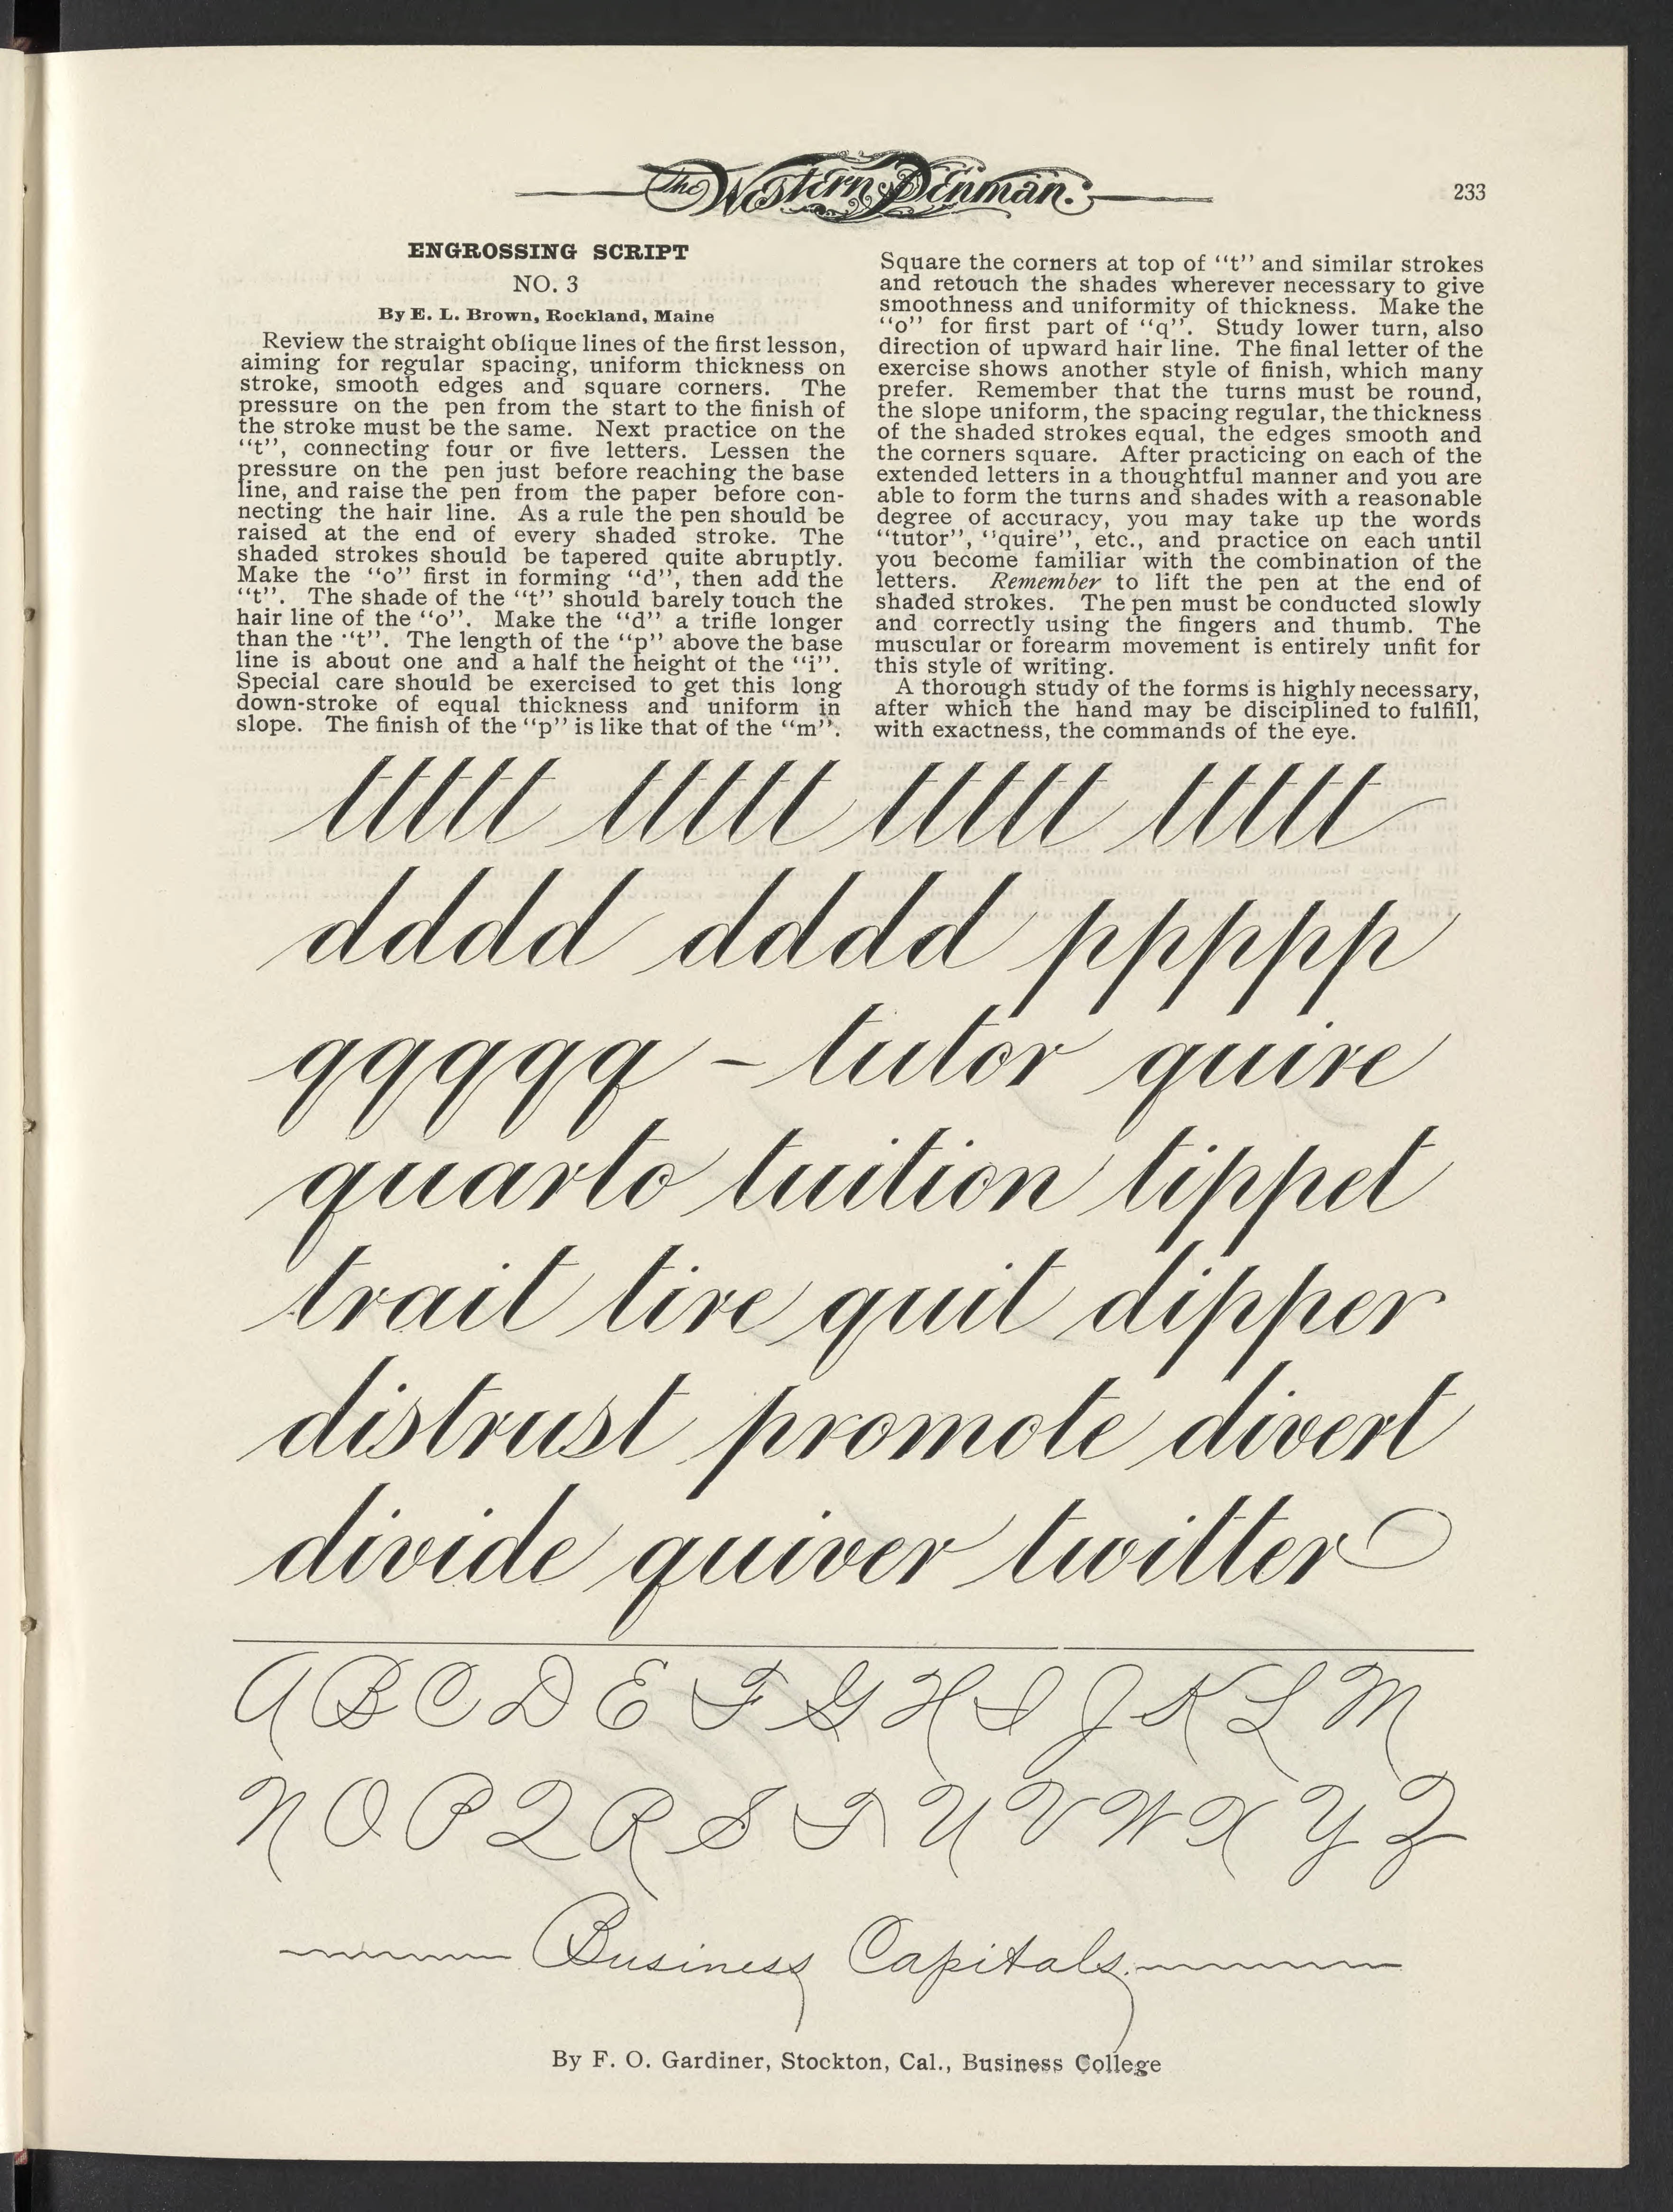 The Western Penman.
233
ENGROSSING SCRIPT
NO. 3
By E. L. Brown, Rockland, Maine
Review the straight oblique lines of the first lesson,
aiming for regular spacing, uniform thickness on
stroke, smooth edges and square corners. The
pressure on the pen from the start to the finish of
the stroke must be the same. Next practice on the
“t”, connecting four or five letters. Lessen the
pressure on the pen just before reaching the base
line, and raise the pen from the paper before con-
necting the hair line. As a rule the pen should be
raised at the end of every shaded stroke. The
shaded strokes should be tapered quite abruptly.
Make the “o” first in forming “d”, then add the
“t”. The shade of the “t” should barely touch the
hair line of the “o”. Make the “d” a trifle longer
than the “t”. The length of the “p” above the base
line is about one and a half the height of the “i”.
Special care should be exercised to get this long
down-stroke of equal thickness and uniform in
slope. The finish of the “p” is like that of the “m”.
Square the corners at top of “t” and similar strokes
and retouch the shades wherever necessary to give
smoothness and uniformity of thickness. Make the
“o” for first part of “q”. Study lower turn, also
direction of upward hair line. The final letter of the
exercise shows another style of finish, which many
prefer. Remember that the turns must be round,
the slope uniform, the spacing regular, the thickness
of the shaded strokes equal, the edges smooth and
the corners square. After practicing on each of the
extended letters in a thoughtful manner and you are
able to form the turns and shades with a reasonable
degree of accuracy, you may take up the words
“tutor”, “quire”, etc., and practice on each until
you become familiar with the combination of the
letters. Remember to lift the pen at the end of
shaded strokes. The pen must be conducted slowly
and correctly using the fingers and thumb. The
muscular or forearm movement is entirely unfit for
this style of writing.
A thorough study of the forms is highly necessary,
after which the hand may be disciplined to fulfill,
with exactness, the commands of the eye.
ttttt ttttt ttttt ttttt
dddd dddd ppppp
qqqqq – tutor quire
quarto tuition tippet
trait tire quit dipper
distrust promote divert
divide quiver twitter
A B C D E F G H I J K L M
N O P Q R S T U V W X Y Z
Business Capitals.
By F. O. Gardiner, Stockton, Cal., Business College